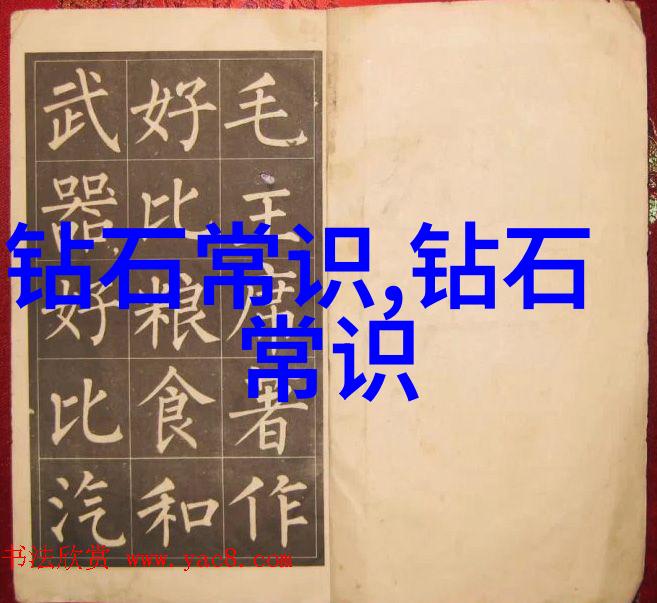 毛主席著作
好比粮食和
武器好比汽
钻石常识,钻石
常识
书法欣赏 www.yac8.com